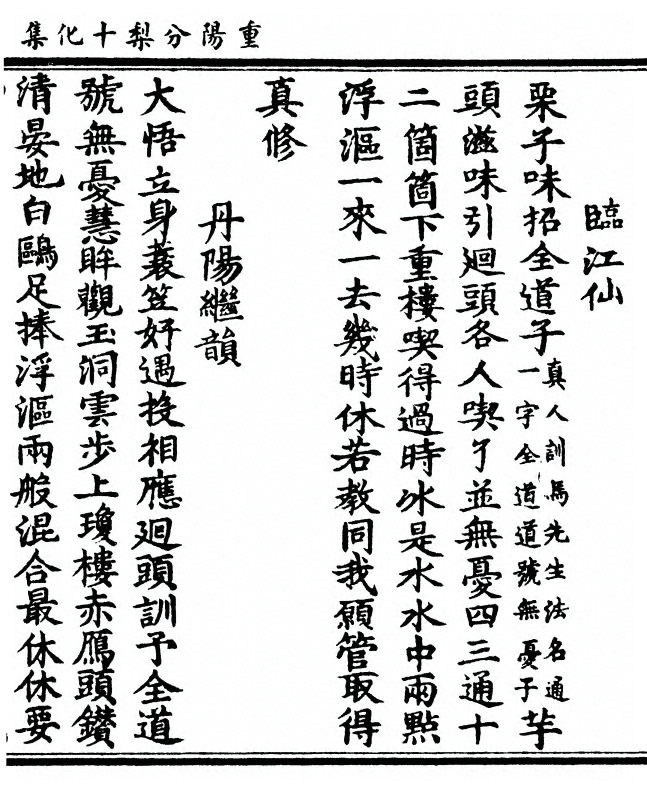 重陽分梨十化集
臨江仙
栗子味招全道子真人訓馬先生法名通一字全道道號無憂子芋
頭滋味引迴頭各人喫了並無憂四三通十
二箇箇下重樓喫得過時冰是水水中兩點
浮漚一來一去幾時休若教同我願管取得
真修
丹陽繼韻
大悟立身蓑笠好遇投相應迴頭訓予全道
號無憂慧眸觀玉洞雲步上瓊樓赤鴈頭鑚
清晏地白鷗足捧浮漚兩般混合最休休要